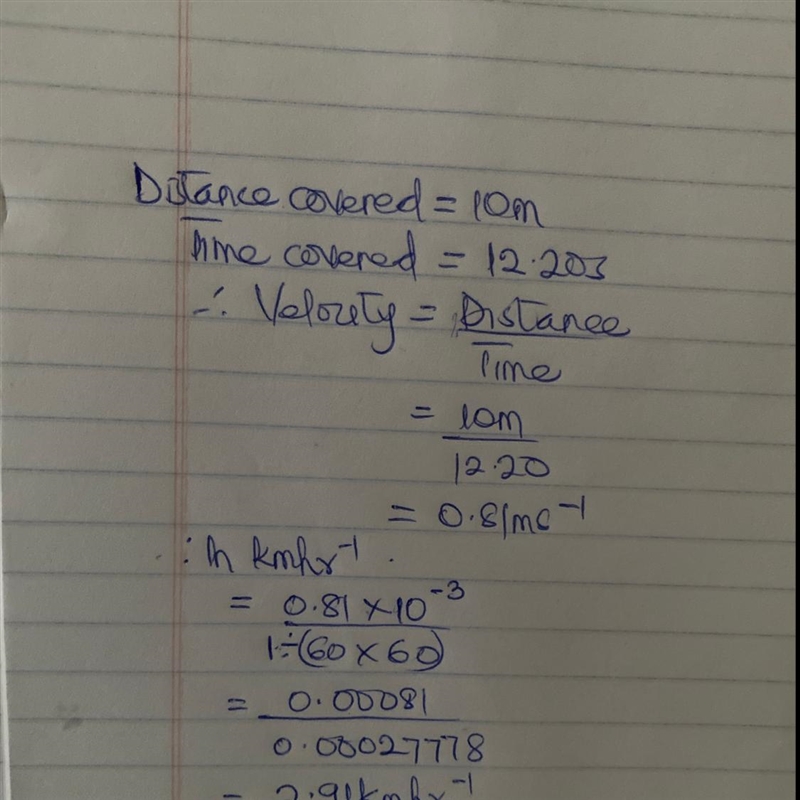 Distance covered = 10m
Time covered = 12.20s
∴ Velocity = Distance
Time
= 10m
12.20
= 0.81ms⁻¹
∴ In kmhr⁻¹.
= 0.81 × 10⁻³
1÷(60 × 60)
= 0.00081
0.00027778
= 2.91kmhr⁻¹